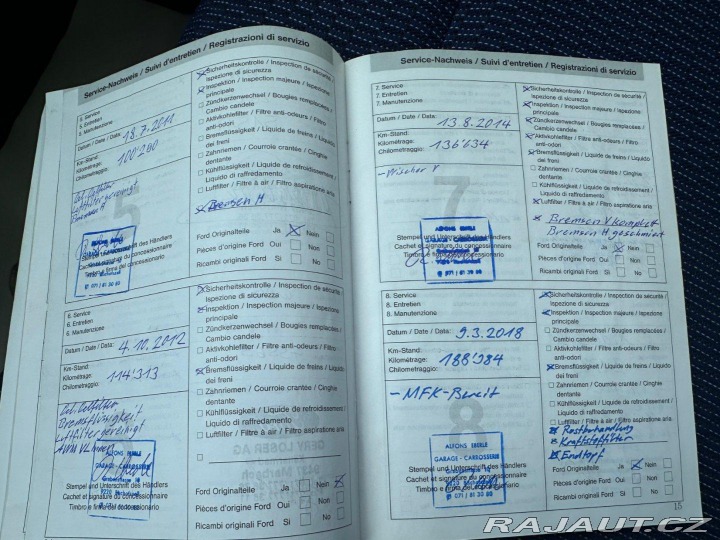 Service-Nachweis / Suivi d'entretien / Registrazioni di servizio
5. Service
5. Entretien
5. Manutenzione
Datum / Date / Data: 18.7.2011
Km-Stand:
Kilométrage:
Chilometraggio: 100'290
Bremsen H
Sicherheitskontrolle / Inspection de sécurité /
Ispezione di sicurezza
Inspektion / Inspection majeure / Ispezione
principale
Zündkerzenwechsel / Bougies remplacées /
Cambio candele
Aktivkohlefilter / Filtre anti-odeurs / Filtro
anti-odori
Bremsflüssigkeit / Liquide de freins / Liquido
dei freni
Zahnriemen / Courroie crantée / Cinghie
dentante
Kühlflüssigkeit / Liquide de refroidissement /
Liquido di raffreddamento
Luftfilter / Filtre à air / Filtro aspiratione aria
Bremsen H
Ford Originalteile Ja Nein
Pièces d'origine Ford Oui Non
Ricambi originali Ford Si No
Stempel und Unterschrift des Händlers
Cachet et signature du concessionnaire
Timbro e firma del concessionario
6. Service
6. Entretien
6. Manutenzione
Datum / Date / Data: 4.10.2012
Km-Stand:
Kilométrage:
Chilometraggio: 114'313
Bremsflüssigkeit
Luftfilter gereinigt
Sicherheitskontrolle / Inspection de sécurité /
Ispezione di sicurezza
Inspektion / Inspection majeure / Ispezione
principale
Zündkerzenwechsel / Bougies remplacées /
Cambio candele
Aktivkohlefilter / Filtre anti-odeurs / Filtro
anti-odori
Bremsflüssigkeit / Liquide de freins / Liquido
dei freni
Zahnriemen / Courroie crantée / Cinghie
dentante
Kühlflüssigkeit / Liquide de refroidissement /
Liquido di raffreddamento
Luftfilter / Filtre à air / Filtro aspiratione aria
ALFONS EBERLE
GARAGE - CARROSSERIE
Stempel und Unterschrift des Händlers
Cachet et signature du concessionnaire
Timbro e firma del concessionario
Ford Originalteile Ja Nein
Pièces d'origine Ford Oui Non
Ricambi originali Ford Si No
Service-Nachweis / Suivi d'entretien / Registrazioni di servizio
7. Service
7. Entretien
7. Manutenzione
Datum / Date / Data: 13.8.2014
Km-Stand:
Kilométrage:
Chilometraggio: 136'634
- Wischer V
7
Sicherheitskontrolle / Inspection de sécurité /
Ispezione di sicurezza
Inspektion / Inspection majeure / Ispezione
principale
Zündkerzenwechsel / Bougies remplacées /
Cambio candele
Aktivkohlefilter / Filtre anti-odeurs / Filtro
anti-odori
Bremsflüssigkeit / Liquide de freins / Liquido
dei freni
Zahnriemen / Courroie crantée / Cinghie
dentante
Kühlflüssigkeit / Liquide de refroidissement /
Liquido di raffreddamento
Luftfilter / Filtre à air / Filtro aspiratione aria
Bremsen V komplett
Bremsen H geschmiert
ALFONS EBERLE
GARAGE - CARROSSERIE
Stempel und Unterschrift des Händlers
Cachet et signature du concessionnaire
Timbro e firma del concessionario
Ford Originalteile Ja Nein
Pièces d'origine Ford Oui Non
Ricambi originali Ford Si No
8. Service
8. Entretien
8. Manutenzione
Datum / Date / Data: 9.3.2018
Km-Stand:
Kilométrage:
Chilometraggio: 188'984
- MFK-Bereit
8
Sicherheitskontrolle / Inspection de sécurité /
Ispezione di sicurezza
Inspektion / Inspection majeure / Ispezione
principale
Zündkerzenwechsel / Bougies remplacées /
Cambio candele
Aktivkohlefilter / Filtre anti-odeurs / Filtro
anti-odori
Bremsflüssigkeit / Liquide de freins / Liquido
dei freni
Zahnriemen / Courroie crantée / Cinghie
dentante
Kühlflüssigkeit / Liquide de refroidissement /
Liquido di raffreddamento
Luftfilter / Filtre à air / Filtro aspiratione aria
Rostbehandlung
Kraftstoffilter
Endtopf
ALFONS EBERLE
GARAGE - CARROSSERIE
Stempel und Unterschrift des Händlers
Cachet et signature du concessionnaire
Timbro e firma del concessionario
Ford Originalteile Ja Nein
Pièces d'origine Ford Oui Non
Ricambi originali Ford Si No
15
RAJAUT.CZ